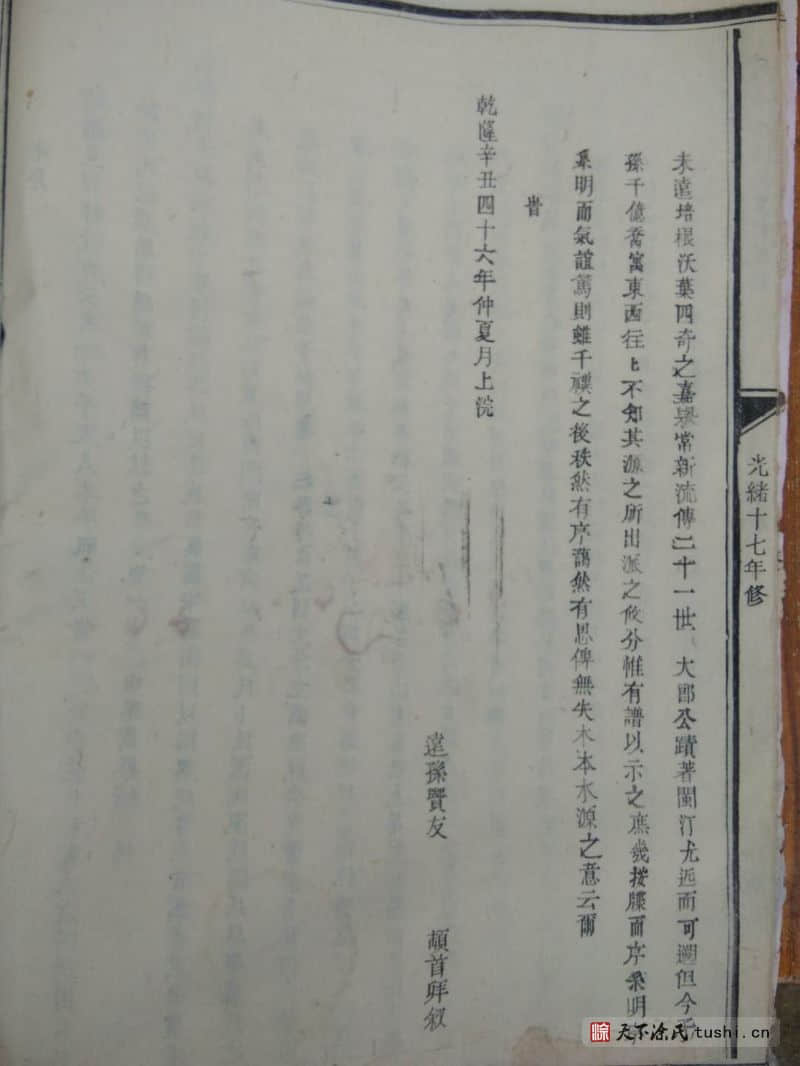 未遠培根沃葉四奇之嘉譽常新流傳二十一世大郎公蹟著閩汀尤近而可遡但今子
孫千億喬寓東西往々不知其源之所出派之攸分惟有譜以示之庶幾按牒而序系明
系明而氣誼篤則雖千禩之後秩然有序藹然有恩俾無失木本水源之意云爾
旹
乾隆辛丑四十六年仲夏月上浣
遠孫賢友 頓首拜叙
光緒十七年修
涂 天下涂氏tushi.cn